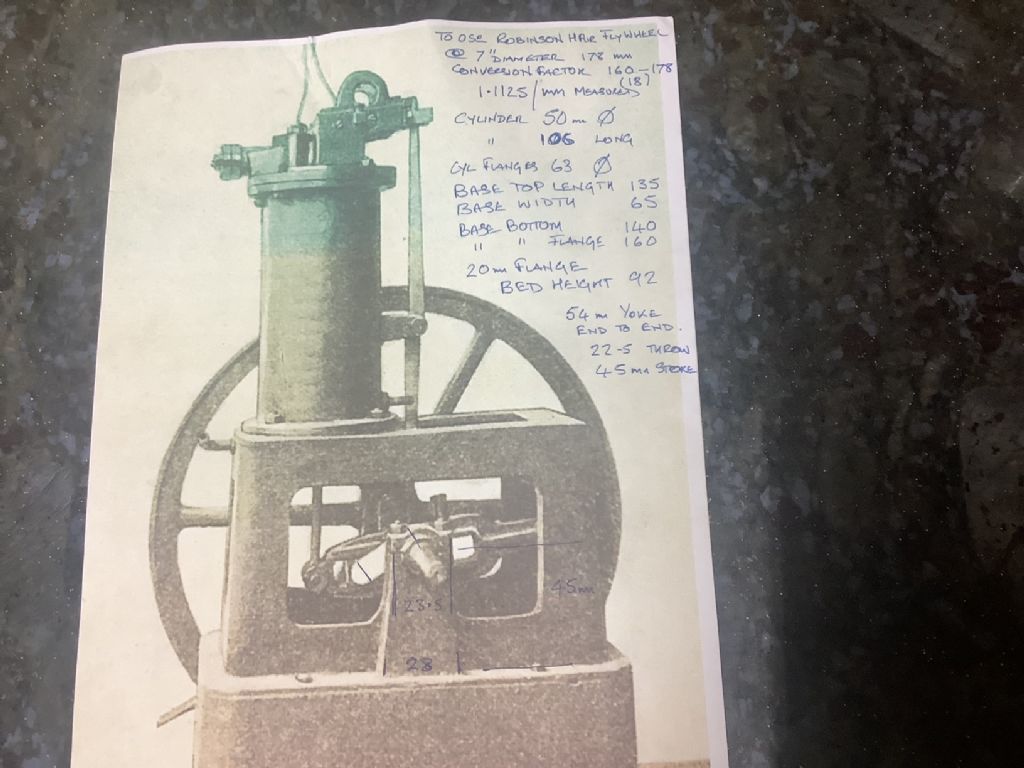 TO USE ROBINSON HAR FLYWHEEL
@ 7" DIAMETER 178 mm
CONVERSION FACTOR 160-178
(18)
1.1125/mm MEASURED
CYLINDER 50 m Ø
" 106 LONG
CYL FLANGES 63 Ø
BASE TOP LENGTH 135
BASE WIDTH 65
BASE BOTTOM 140
" " FLANGE 160
20m FLANGE
BED HEIGHT 92
54 m YOKE
END TO END.
22-5 THROW
45mm STROKE
45mm
23.5
28